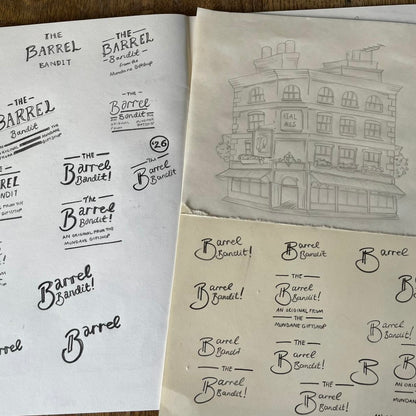 THE
BARREL
BANDIT
THE
BARREL
Bandit
from the
Mundane Giftshop
THE
BARREL
Bandit
AN ORIGINAL
FROM
THE
MUNDANE
GIFTSHOP
THE
Barrel
Bandit
THE
Barrel
Bandit!
#26
THE
Barrel
Bandit!
BANDIT
THE
Barrel
Bandit!
AN ORIGINAL FROM THE
MUNDANE GIFTSHOP
Barrel
Bandit!
Barrel
REAL
ALES
Barrel
Bandit!
Barrel
Bandit!
Barrel
Barrel
Bandit!
THE
Barrel
Bandit!
AN ORIGINAL FROM
THE
MUNDANE GIFTSHOP
B
Barrel
Bandit
THE
Barrel
Bandit!
Barrel
Bandit!
THE
Barrel
Bandit!
THE
Barrel
Bandit!
B
AN ORIGINAL
MUNDANE